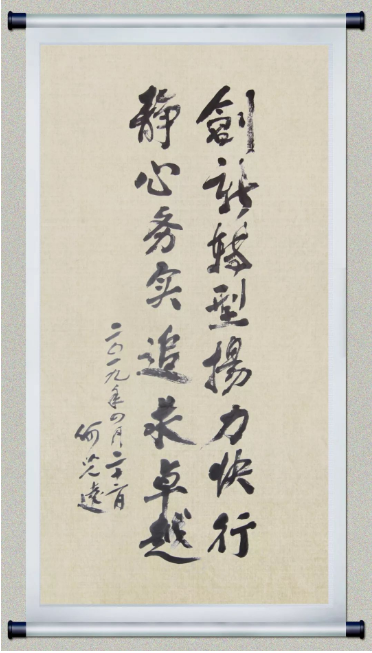 創新轉型揚力快行
静心务实追求卓越
二〇一九年四月二十二日
何光遠